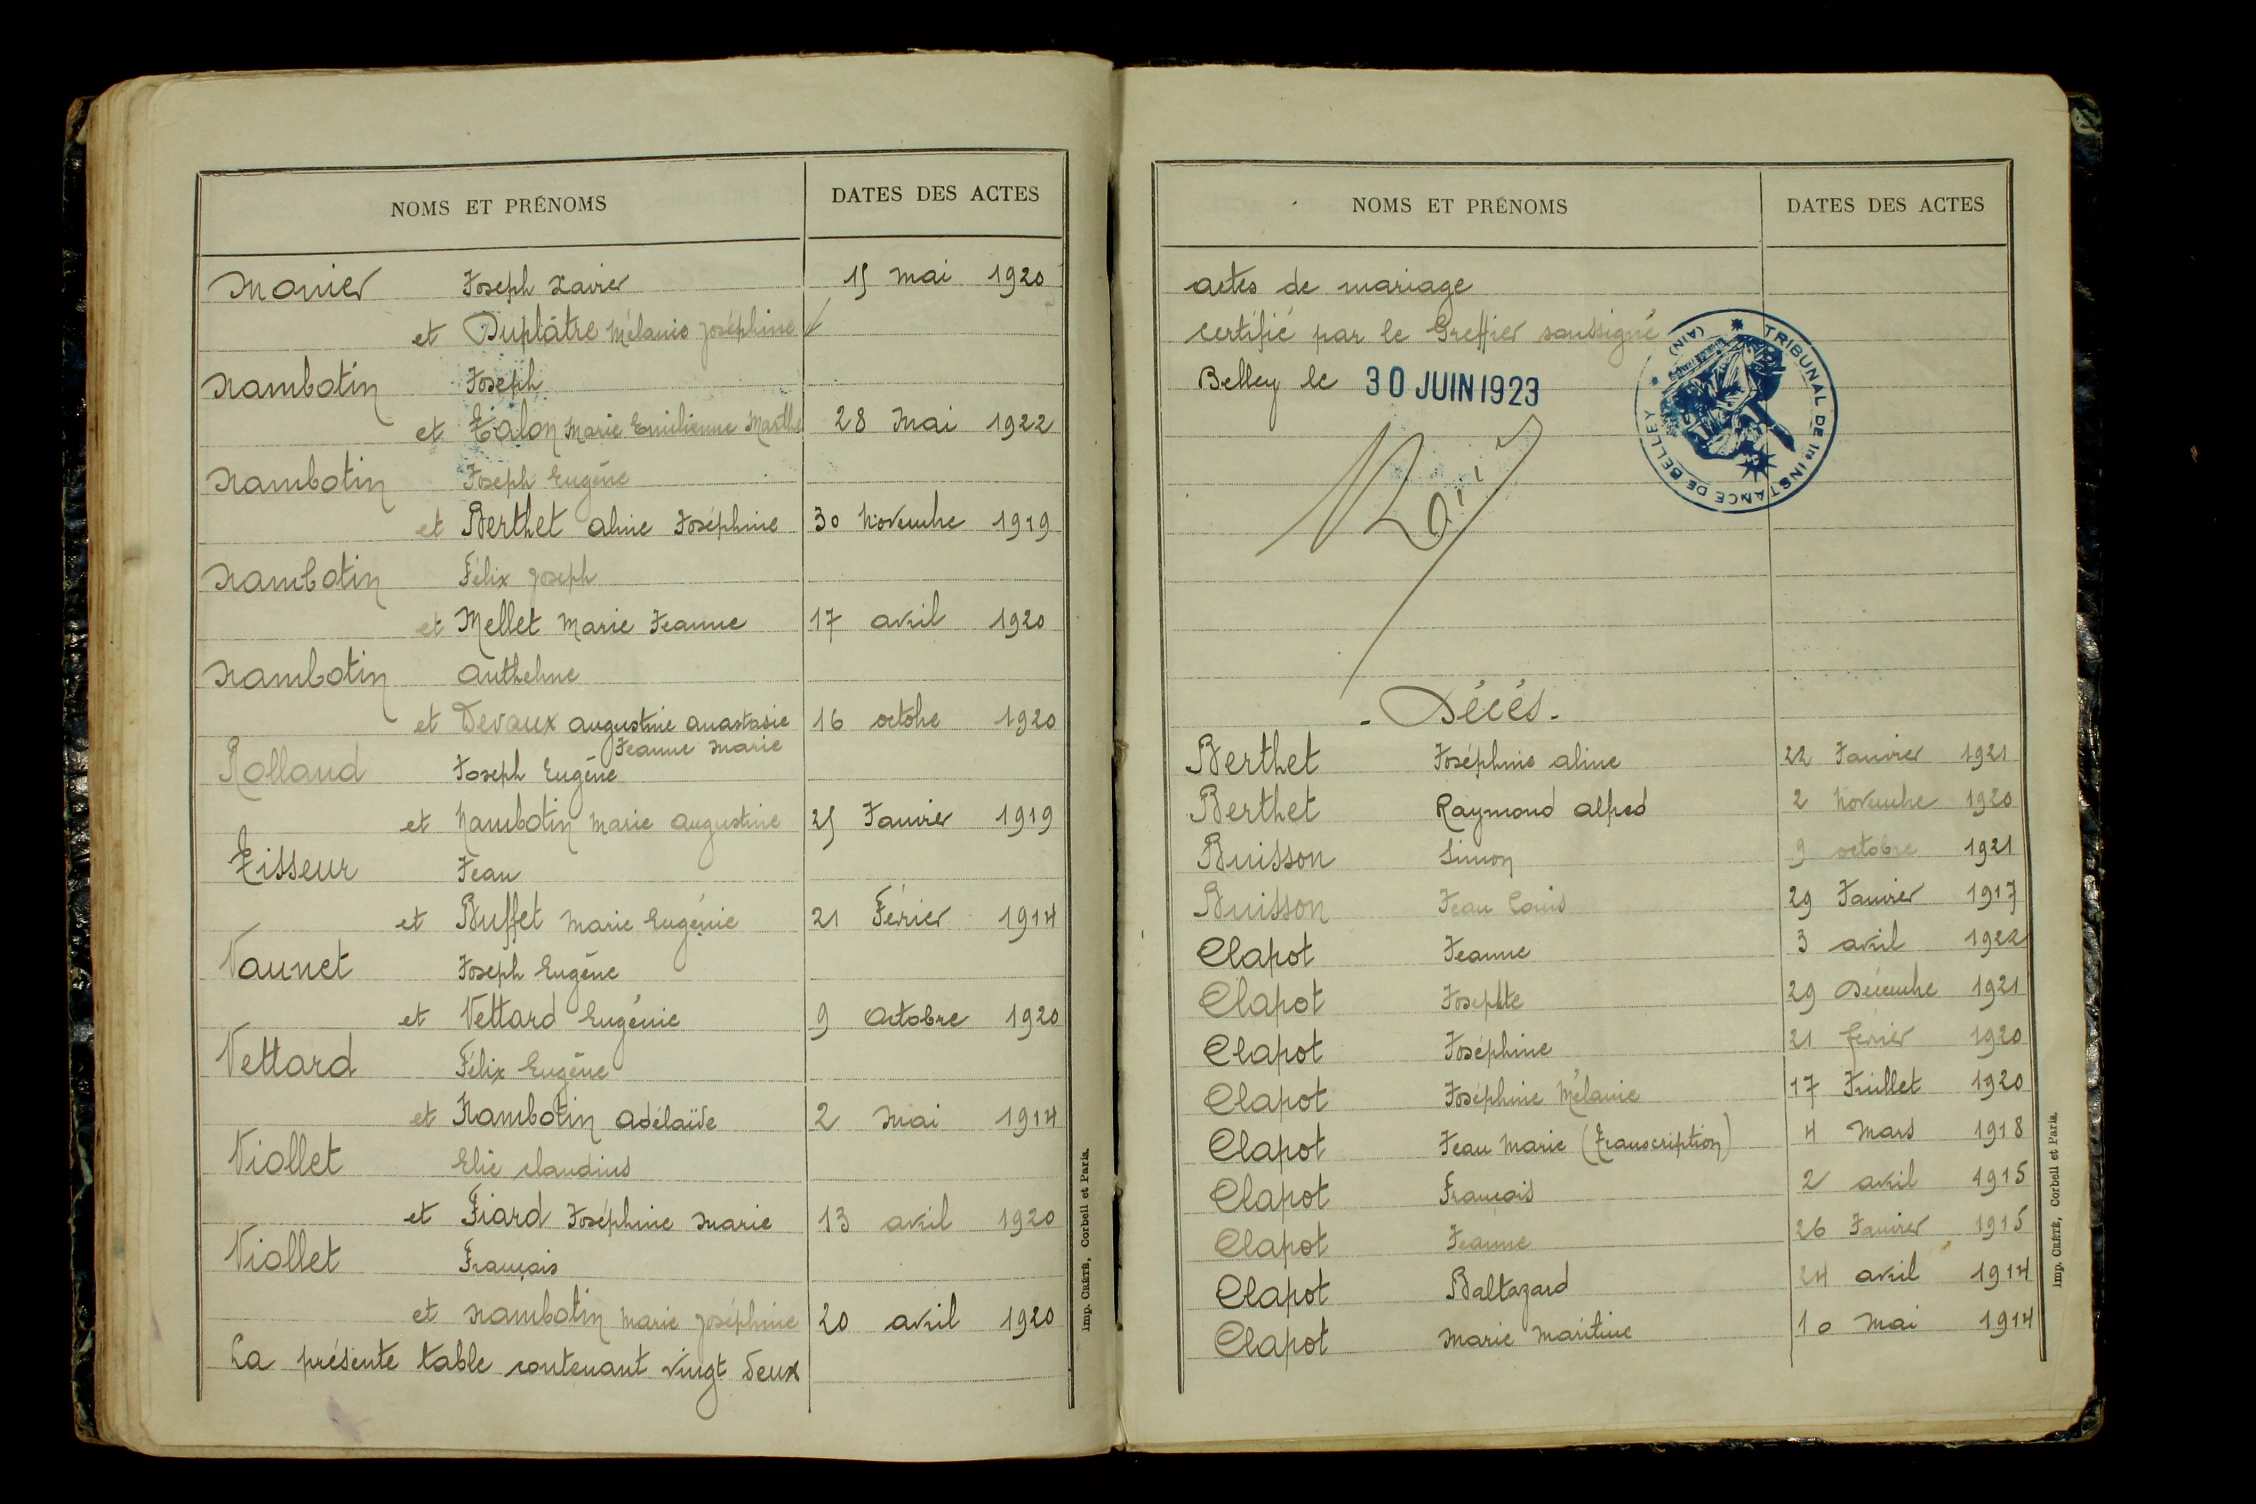 NOMS ET PRÉNOMS DATES DES ACTES
Monier Joseph Xavier 15 Mai 1920
et Duplâtre Mélanie Joséphine
Nambotin Joseph
et Talon Marie Emilienne Marthe 28 Mai 1922
Nambotin Joseph Eugène
et Berthet Aline Joséphine 30 Novembre 1919
Nambotin Félix Joseph
et Mellet Marie Jeanne 17 avril 1920
Nambotin Anthelme
et Devaux Augustine Anastasie 16 octobre 1920
Jeanne Marie
Rolland Joseph Eugène
et Nambotin Marie Augustine 25 Janvier 1919
Tisseur Jean
et Buffet Marie Eugénie 21 Février 1914
Vaunet Joseph Eugène
et Vettard Eugénie 9 Octobre 1920
Vettard Félix Eugène
et Nambotin Adélaïde 2 Mai 1914
Viollet Elie Claudius
et Fiard Joséphine Marie 13 avril 1920
Viollet François
et Nambotin Marie Joséphine 20 avril 1920
La présente table contenant vingt deux
Imp. CRÉTÉ, Corbeil et Paris.
NOMS ET PRÉNOMS DATES DES ACTES
actes de mariage
certifié par le Greffier soussigné
Belley le 30 JUIN 1923
TRIBUNAL DE 1re INSTANCE DE BELLEY (AIN)
- Décés -
Berthet Joséphine Aline 22 Janvier 1921
Berthet Raymond Alfred 2 Novembre 1920
Buisson Simon 9 octobre 1921
Buisson Jean Louis 29 Janvier 1917
Clapot Jeanne 3 avril 1922
Clapot Josephte 29 Décembre 1921
Clapot Joséphine 21 février 1920
Clapot Joséphine Mélanie 17 Juillet 1920
Clapot Jean Marie (Transcription) 4 Mars 1918
Clapot François 2 avril 1915
Clapot Jeanne 26 Janvier 1915
Clapot Baltazard 24 avril 1914
Clapot Marie Maritine 10 Mai 1914
Imp. CRÉTÉ, Corbeil et Paris.